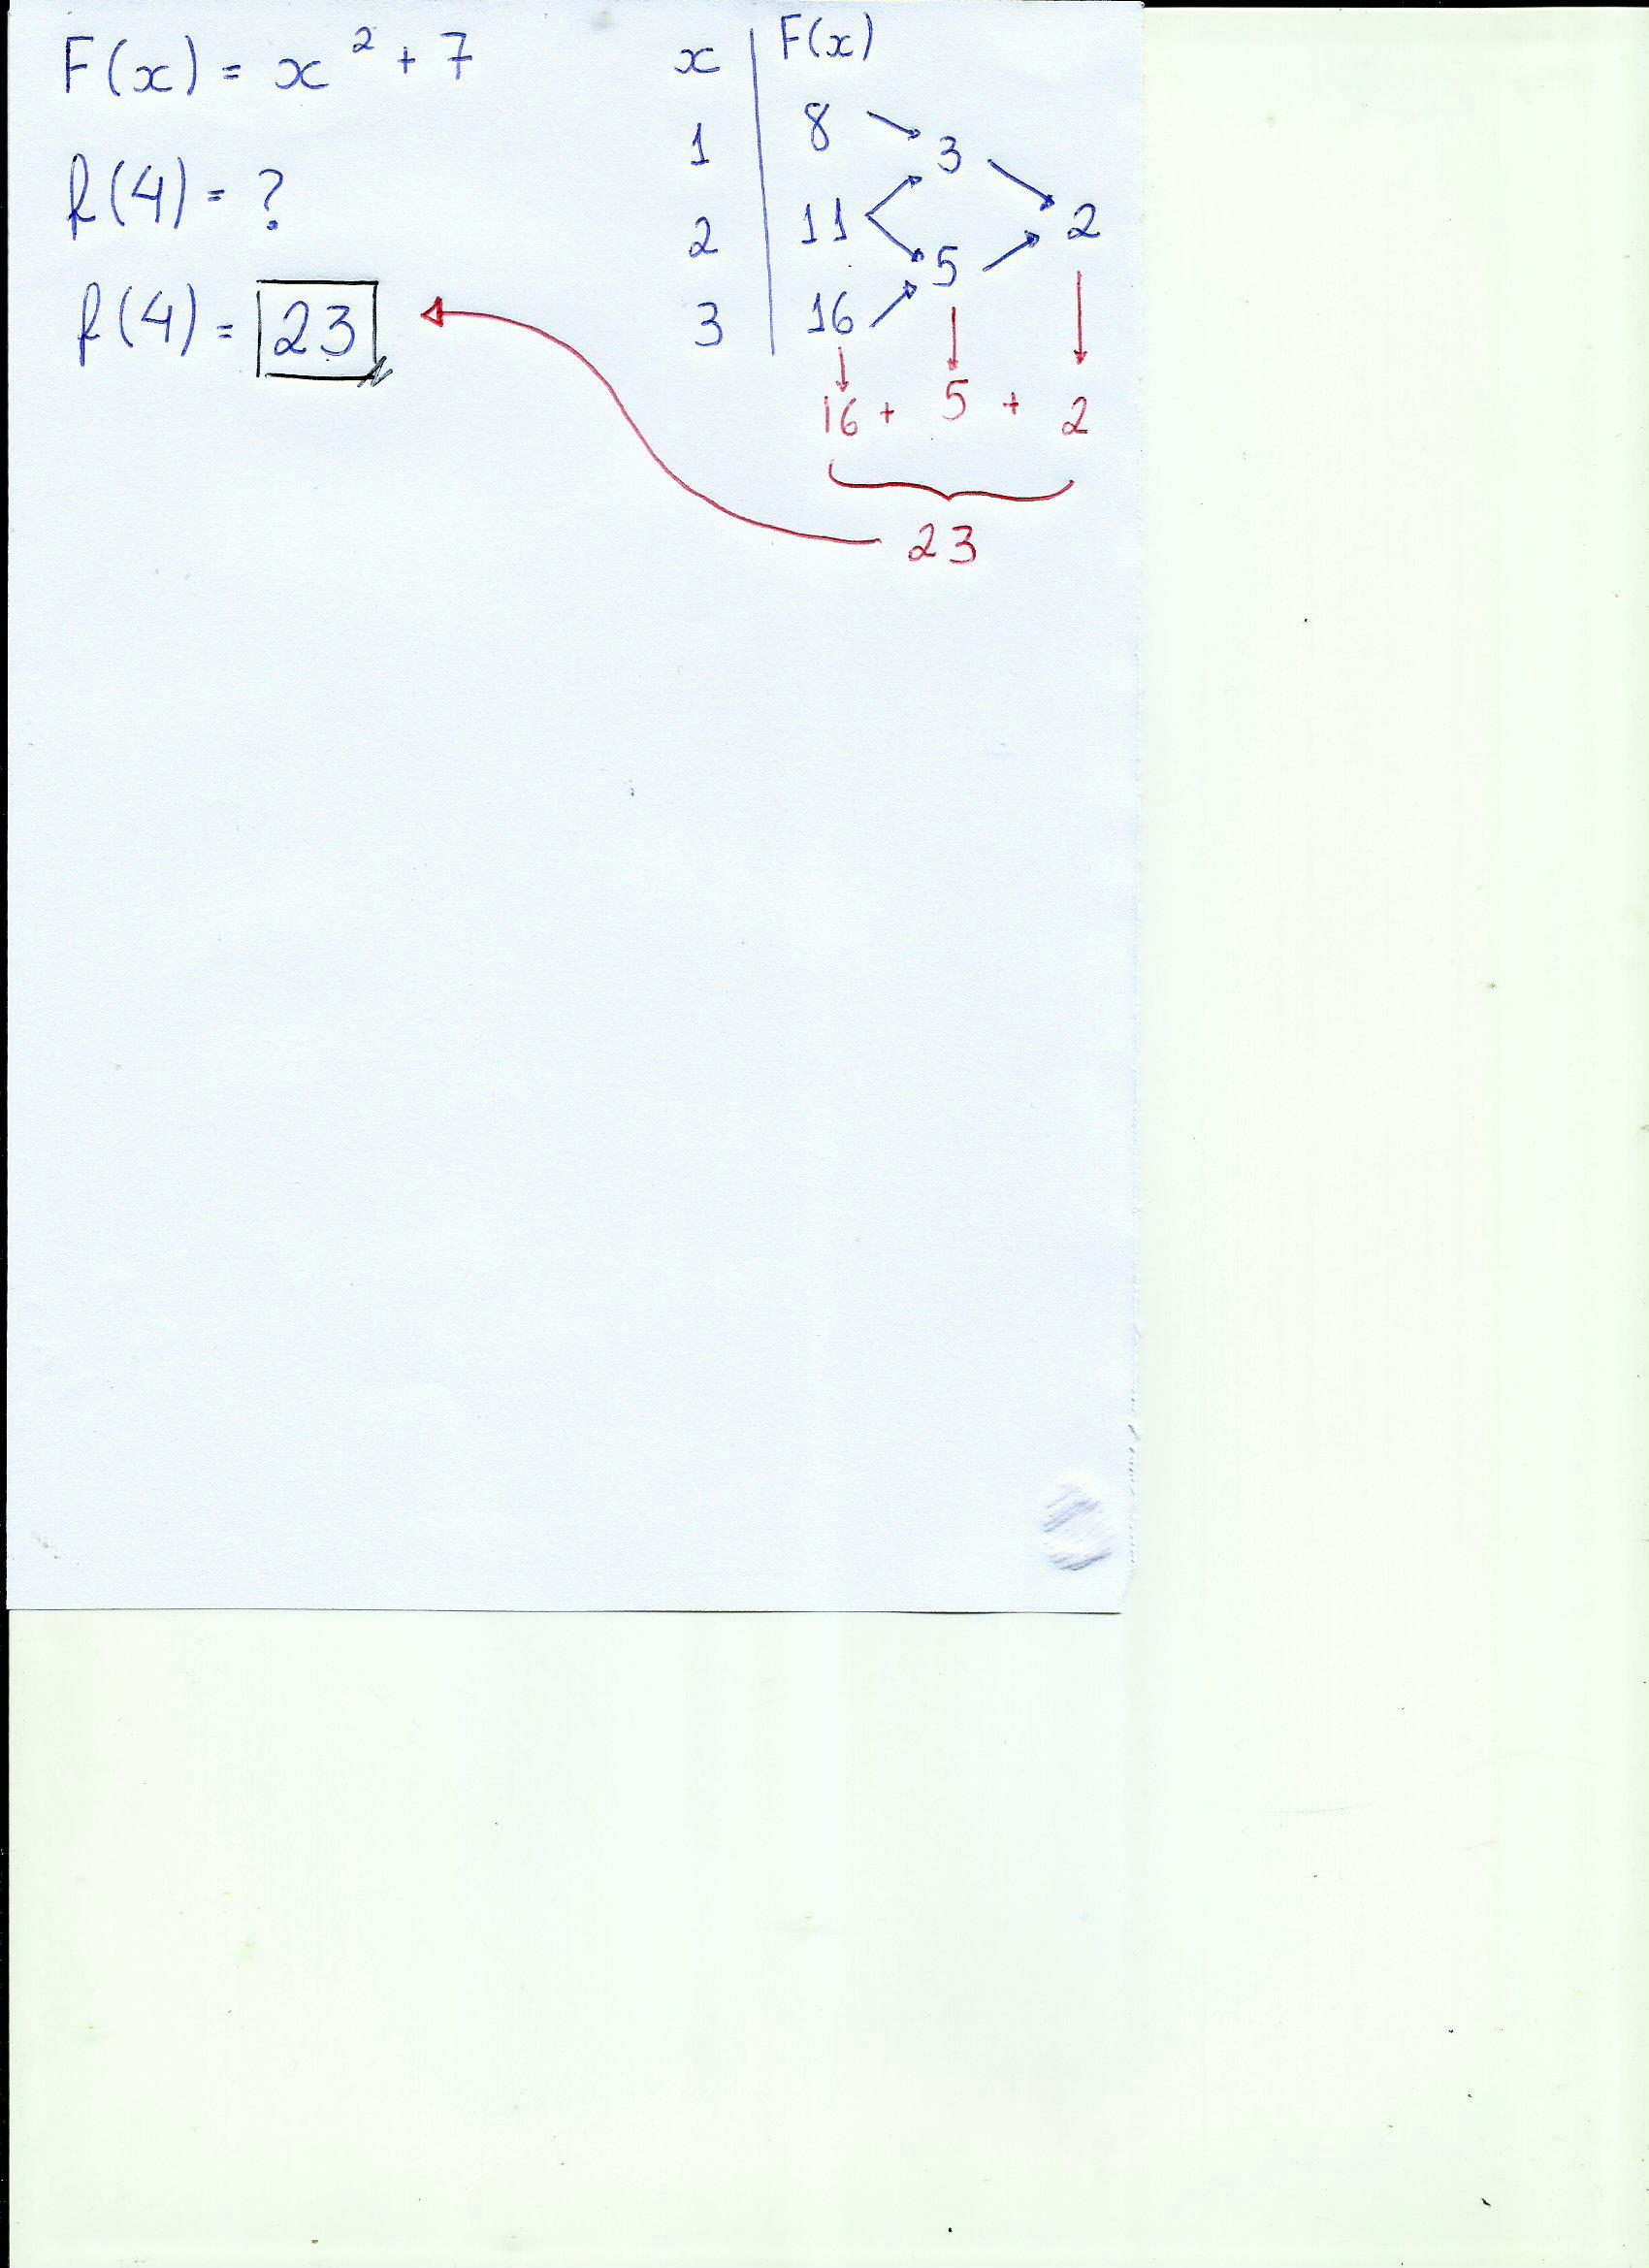 F(x) = x² + 7
f(4) = ?
f(4) = 23
x | F(x)
1 | 8 → 3
2 | 11 → 5 → 2
3 | 16
16 + 5 + 2
23